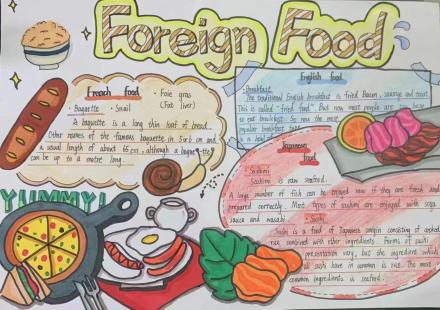 Foreign Food
French food
· Baguette · Snail
· Foie gras
(Fat liver)
A baguette is a long thin loaf of bread.
Other names of the famous baguette in 5 or 6 cm and
a usual length of about 65 cm, although a baguette
can be up to a metre long.
English food
· Breakfast
The traditional English breakfast is fried bacon, sausage and toast
This is called "fried food". But now most people are
to eat breakfast. So now the most
popular breakfast
is a bowl
Japanese
food
· Sashimi
Sashimi is raw seafood.
A large number of fish can be enjoyed raw if they are fresh and
prepared correctly. Most types of sashimi are enjoyed with soya
sauce and wasabi.
· Sushi
Sushi is a food of Japanese origin consisting of cooked
rice combined with other ingredients. Forms of sushi
presentation vary, but the ingredient which
all sushi have in common is rice. The most
common ingredients is seafood.
YUMMY!